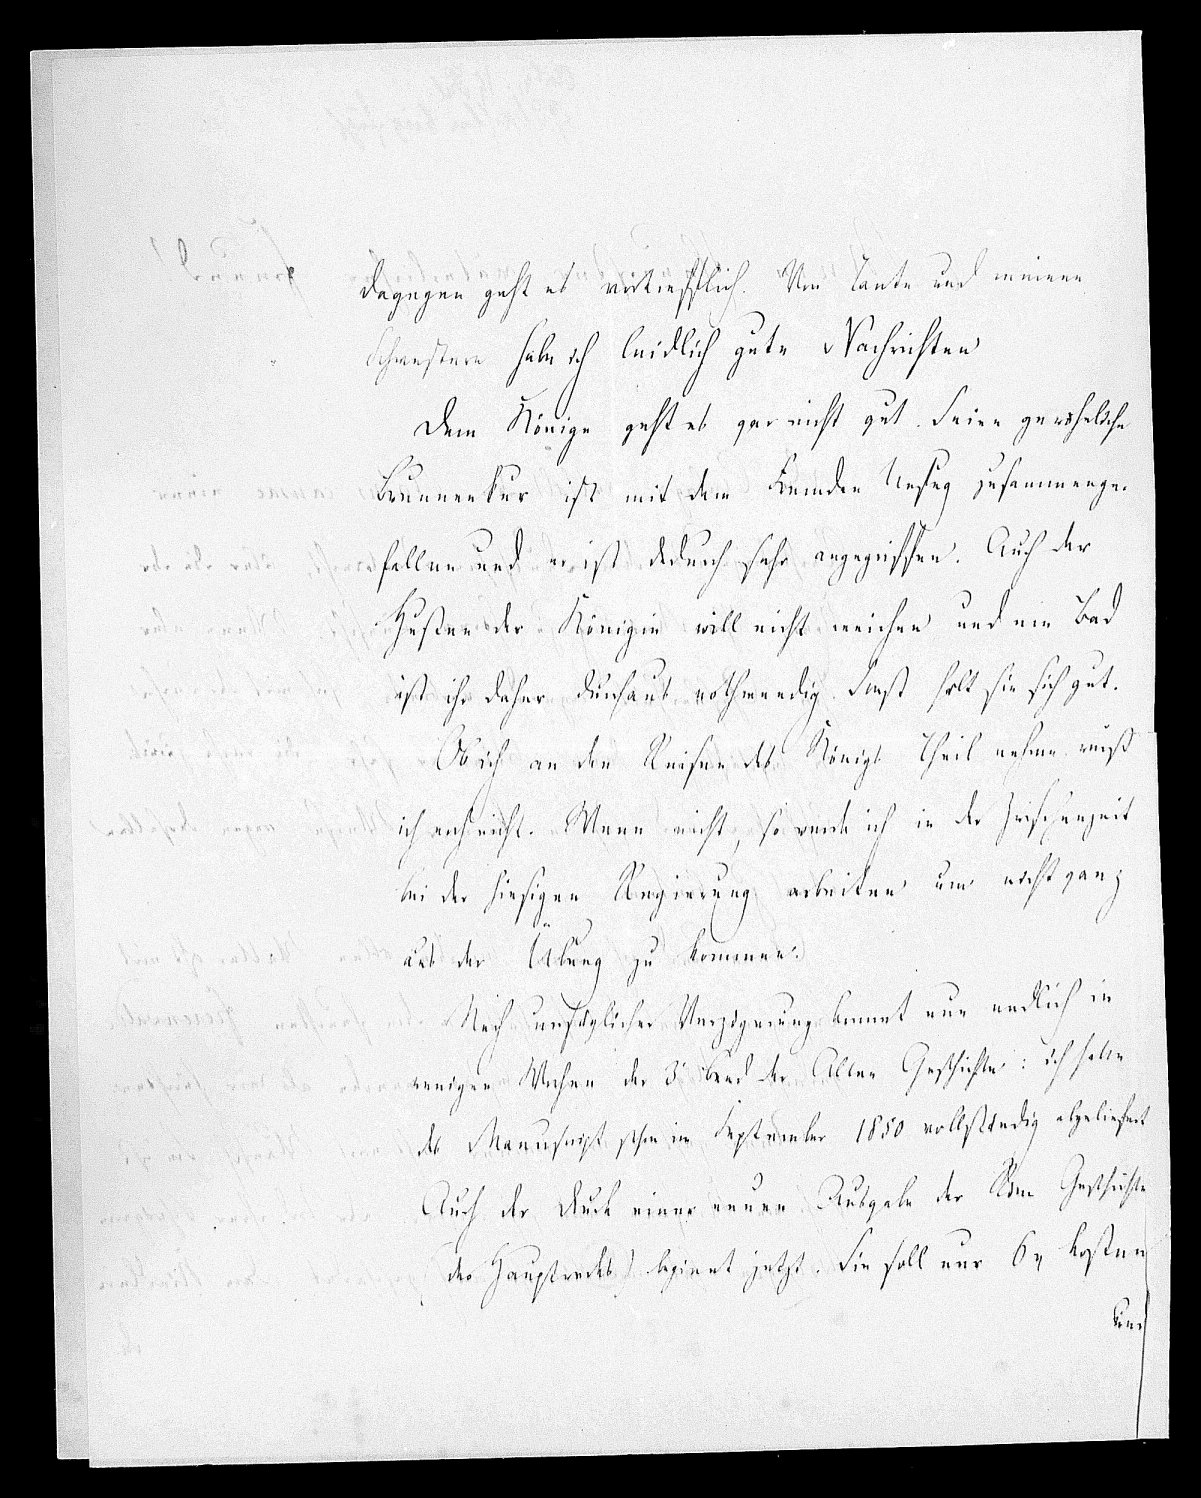 dagegen geht es vortrefflich. Von Tante und meinen
Schwestern habe ich leidlich gute Nachrichten
Dem Könige geht es gar nicht gut. Seine
Brunnenkur ist mit dem Fremden Unfug zusammenge-
fallen und er ist dadurch sehr angegriffen. Auch der
Husten der Königin will nicht weichen und ein Bad
ist ihr daher durchaus nothwendig. Sonst hält sie sich gut.
Ob ich an den Reisen des Königs Theil nehme weiß
ich noch nicht. Wenn nicht, so werde ich in der Zwischenzeit
bei der hiesigen Regierung arbeiten um nicht ganz
aus der Übung zu kommen.
Nach unsäglicher Verzögerung kommt nun endlich in
wenigen Wochen der 3 Band der Alten Geschichte: ich habe
das Manuscript schon im September 1850 vollständig abgeliefert
Auch der Druck einer neuen Ausgabe der Röm Geschichte
(des Hauptwerks) beginnt jetzt. Sie soll nur 6 kosten
und